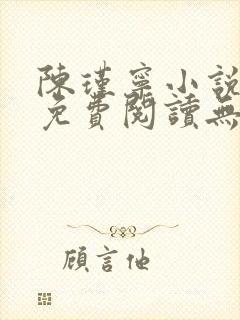 陳瑾寧小說
免費閱讀無
顧言他